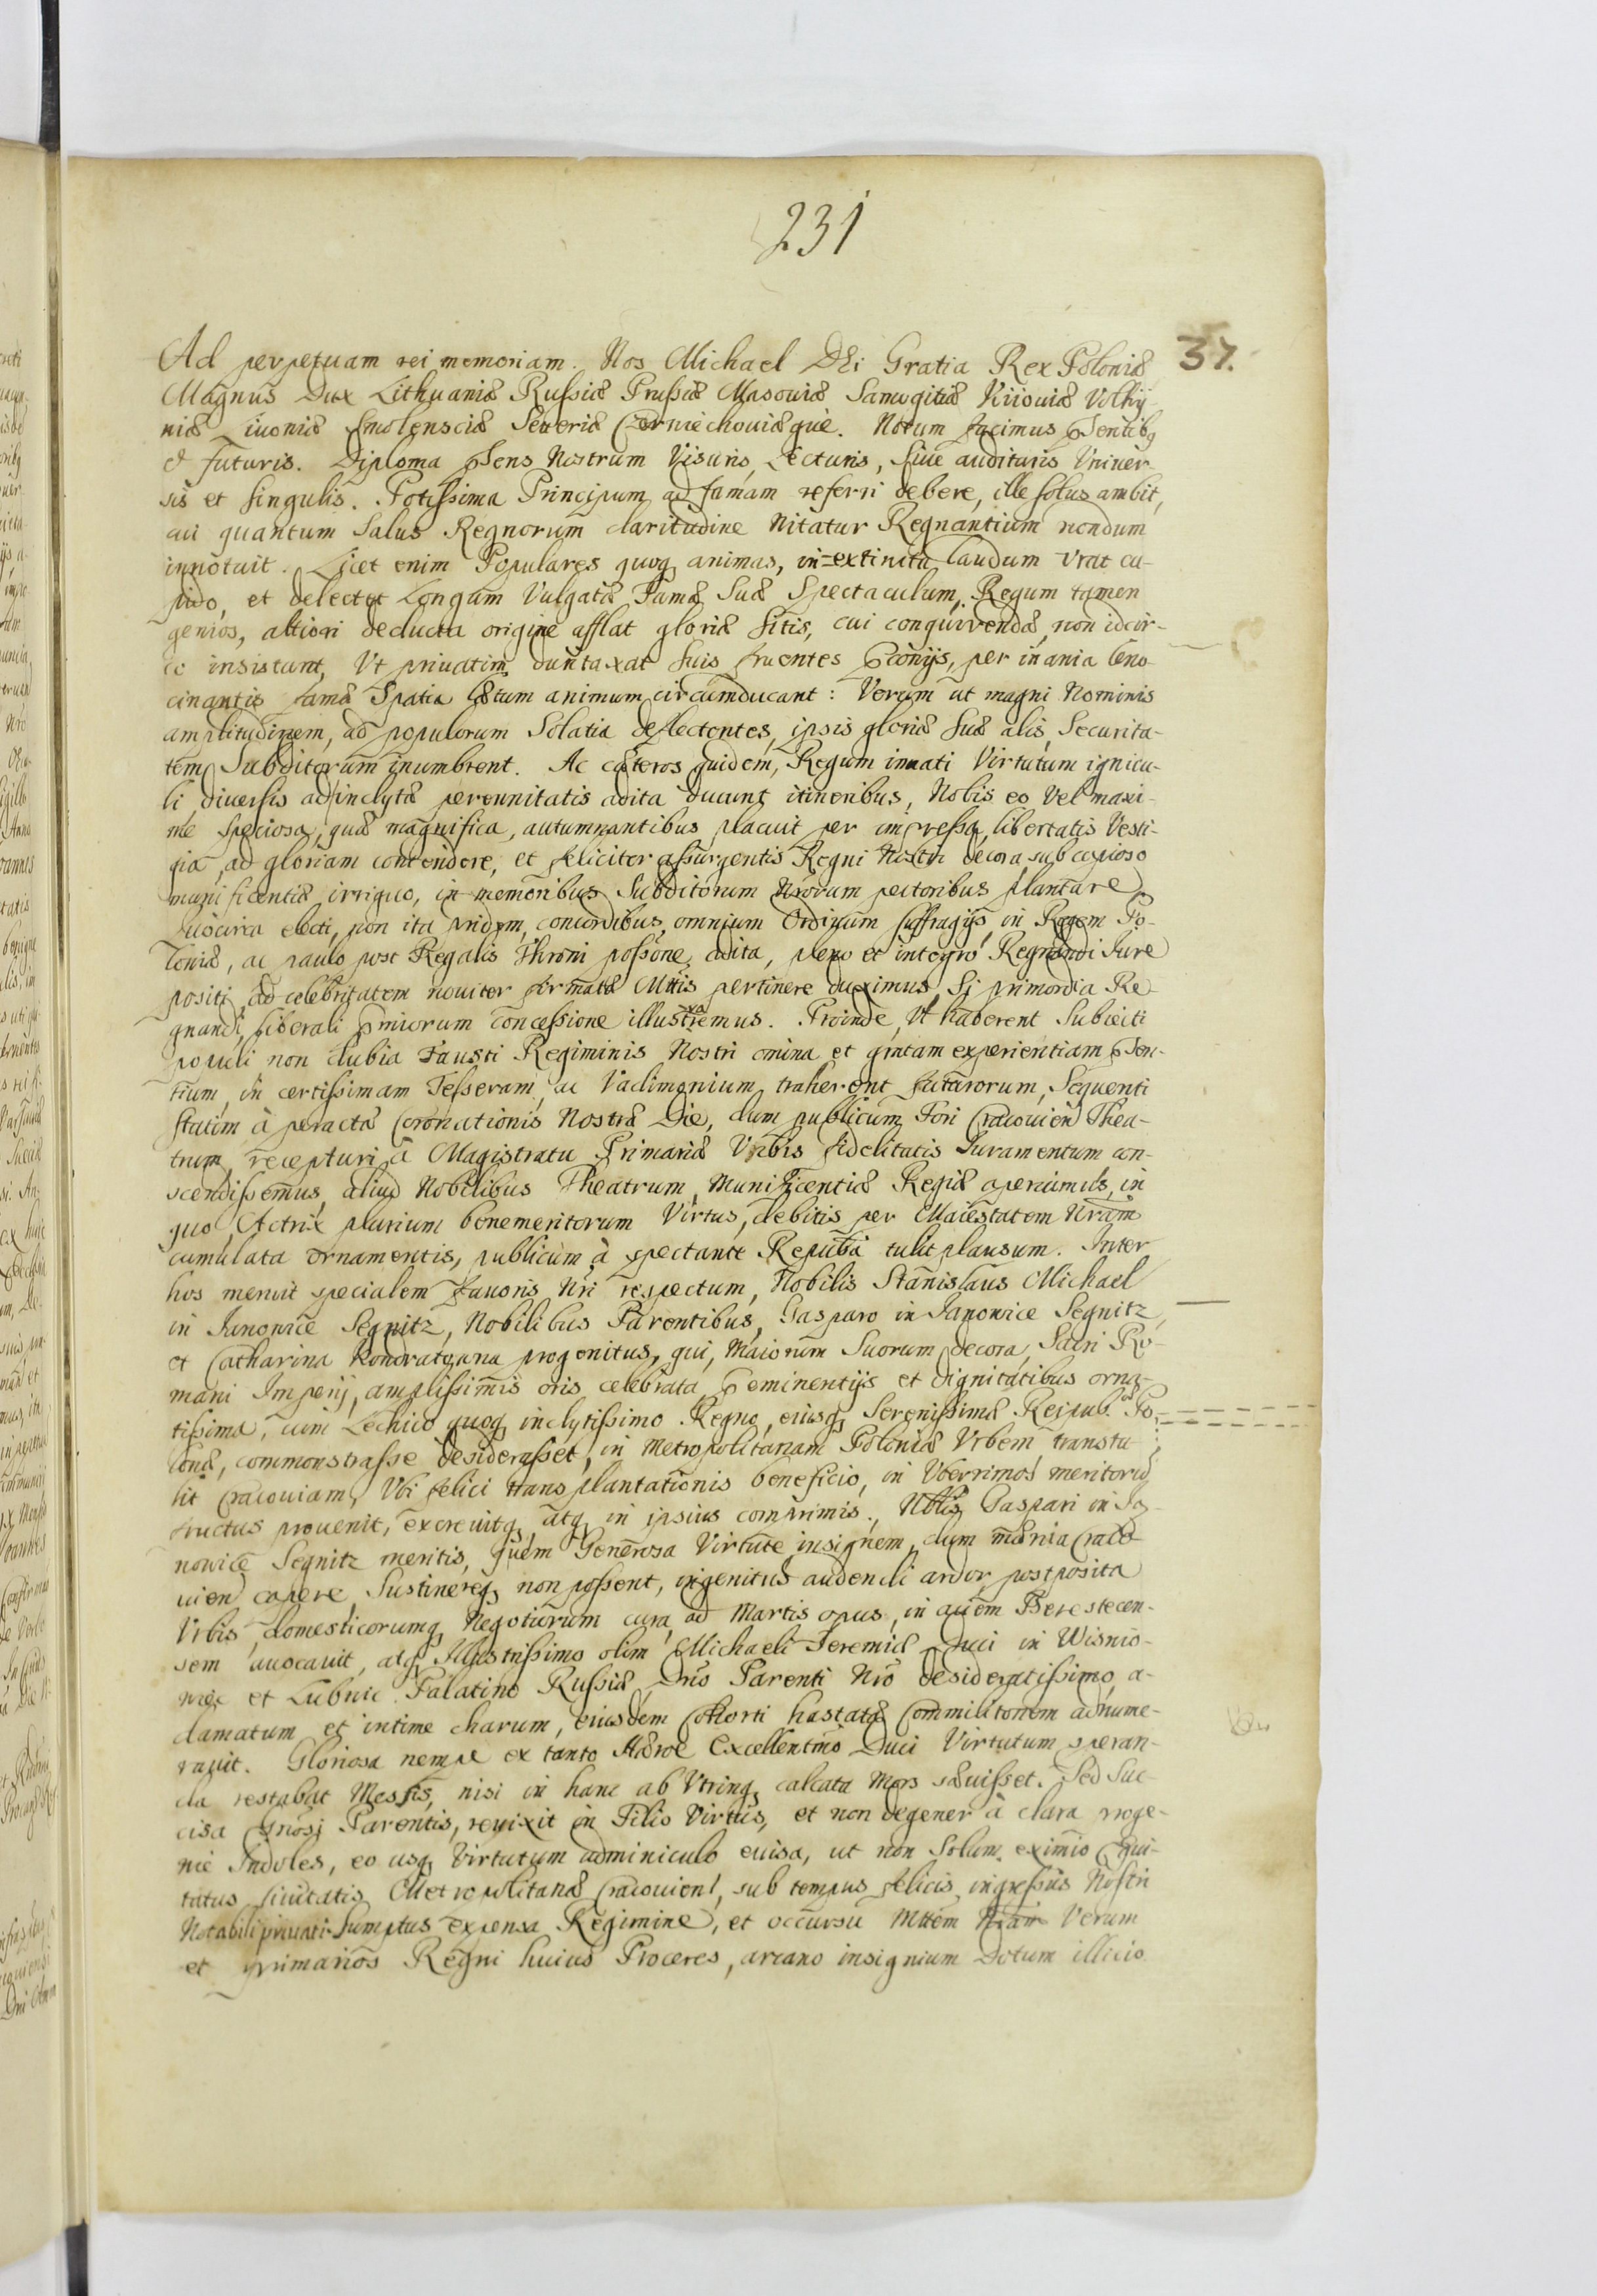 231
37.
Ad perpetuam rei memoriam. Nos Michael Dei Gratia Rex Poloniæ
Magnus Dux Lithuaniæ Russiæ Prussiæ Masoviæ Samogitiæ Kiioviæ Volhy-
niæ Livoniæ Smolensciæ Severiæ Czerniechoviæque. Notum facimus pñtibq
et futuris. Diploma pñsens Nostrum Visuris, Lecturis, sive audituris Univer-
sis et singulis. Potissima Principum ad famam referri debere, ille solus ambit,
cui quantum Salus Regnorum claritudine Nitatur Regnantium nondum
innotuit. Licet enim Populares quoq animas, in-extincta laudum Vrat cu-
pido, et delectet Longum Vulgatæ Famæ Suæ Spectaculum, Regum tamen
genios, altiori deducta origine afflat gloriæ sitis, cui conquirendæ, non idcir-
co insistunt, Vt privatim duntaxat suis fruentes Præconijs, per inania leno-
cinantis famæ Spatia lætum animum circumducant: Verum ut magni Nominis
amplitudinem, ad populorum Solatia deflectentes, ipsis gloriæ suæ alis, Securita-
tem Subditorum inumbrent. Ac cæteros quidem, Regum innati Virtutum ignicu-
li diversis ad inclytæ perennitatis adita ducunt itineribus, Nobis eo Vel maxi-
me Speciosa, quæ magnifica, autumnantibus placuit per impressa libertatis Vesti-
gia, ad gloriam contendere, et feliciter assurgentis Regni Nostri decora, sub copioso
munificentiæ irriguo, in memoribus Subditorum Nrorum pectoribus plantare
Quocirca electi, non ita pridem, concordibus omnium Ordinum suffragijs, in Regem Po-
loniæ, ac paulo post Regalis Throni possone adita, pleno et integro Regnandi Iure
positi, ad celebritatem noviter firmatæ Mttis pertinere duximus, si primordia Re-
gnandi, liberali præmiorum concessione illustraremus. Proinde, Vt haberent Subiecti
populi non dubia Fausti Regiminis Nostri omina et gratam experientiam pñsen-
tium, in certissimam Tesseram, ac Vadimonium traherent futurorum, Sequenti
statim à peracta Coronationis Nostræ Die, dum publicum Fori Cracovien Thea-
trum, recepturi à Magistratu Primariæ Vrbis fidelitatis Iuramentum con-
scendissemus, aliud Nobilibus Theatrum, Munificentiæ Regiæ aperuimus, in
quo, Actrix plurium benemeritorum Virtus, debitis per Maiestatem Nram
cumulata ornamentis, publicum à spectante Repuba tulit plausum. Inter
hos meruit specialem favoris Nri respectum, Nobilis Stanislaus Michael
in Janowice Segnitz, Nobilibus Parentibus, Gasparo in Janowice Segnitz,
et Catharina Kondratowna progenitus, qui, Maiorum Suorum decora, Sacri Ro-
mani Imperij, amplissimis oris celebrata, præeminentijs et dignitatibus orna-
tissima, cum Lechico quoq inclytissimo Regno, eiusq Serenissimæ Reipub. Po-
lonæ, commonstrasse desiderasset, in Metropolitanam Poloniæ Vrbem transtu-
lit Cracoviam, Vbi felici transplantationis beneficio, in Vberrimos meritorum
fructus provenit, excrevitq, atq in ipsius comprimis, Nblis Gaspari in Ja-
nowice Segnitz meritis, quem Generosa Virtute insignem, dum mœnia Craco-
vien capere, Sustinereq non possent, ingenitus audendi ardor, postposita
Vrbis, domesticorumq Negotiorum cura, ad Martis opus, in aciem Berestecen-
sem avocavit, atq Illustrissimo olim Michaeli Ieremiæ Duci in Wisnio-
wiec et Lubnie Palatino Russiæ, Dno Parenti Nro desideratissimo, a-
damatum, et intime charum, eiusdem Cohorti hastatæ Commilitonem adnume-
ravit. Gloriosa nempe ex tanto Heroe Excellentmo Duci Virtutum speran-
da restabat Messis, nisi in hanc ab Vtrinq calcata Mors sævisset. Sed Suc-
cisa Gnosi Parentis, revixit in Filio Virtus, et non degener à clara proge-
nie Indoles, eo usq Virtutum adminiculo evisa, ut non Solum eximio Equi-
tatus Civitatis Metropolitanæ Cracovien, sub tempus felicis ingressus Nostri
Notabili privati Sumptus expensa Regimine, et occursu Mttem Nram Verum
et primarios Regni huius Proceres, arcano insignium Dotum illicio